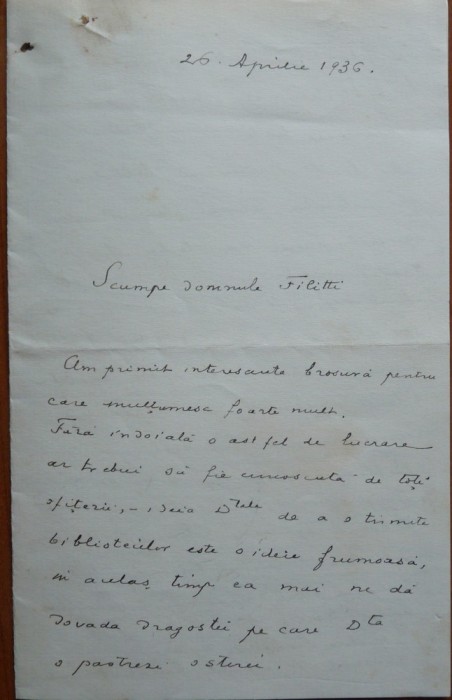 26. Aprilie 1936.
Scumpe Domnule Filitti
Am primit interesanta brosură pentru
care mulțumesc foarte mult.
Fără îndoială o astfel de lucrare
ar trebui să fie cunoscută de toți
ofițerii, – ideia Dtale de a o trimite
bibliotecilor este o ideie frumoasă,
în acelaș timp ea mai ne dă
dovada dragostei pe care Dta
o pastrezi ostirei.